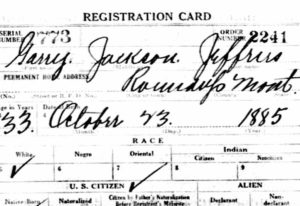 REGISTRATION CARD
SERIAL NUMBER 1773 ORDER NUMBER 2241
Garry Jackson Jeffries
PERMANENT HOME ADDRESS
Roundup Mont.
Age in Years Date of Birth
33 October 23. 1885
RACE
White Negro Oriental Indian
Citizen Noncitizen
5 6 7 8 9
U. S. CITIZEN ALIEN
Native Born Naturalized Citizen by Father's Naturalization Declarant Non-